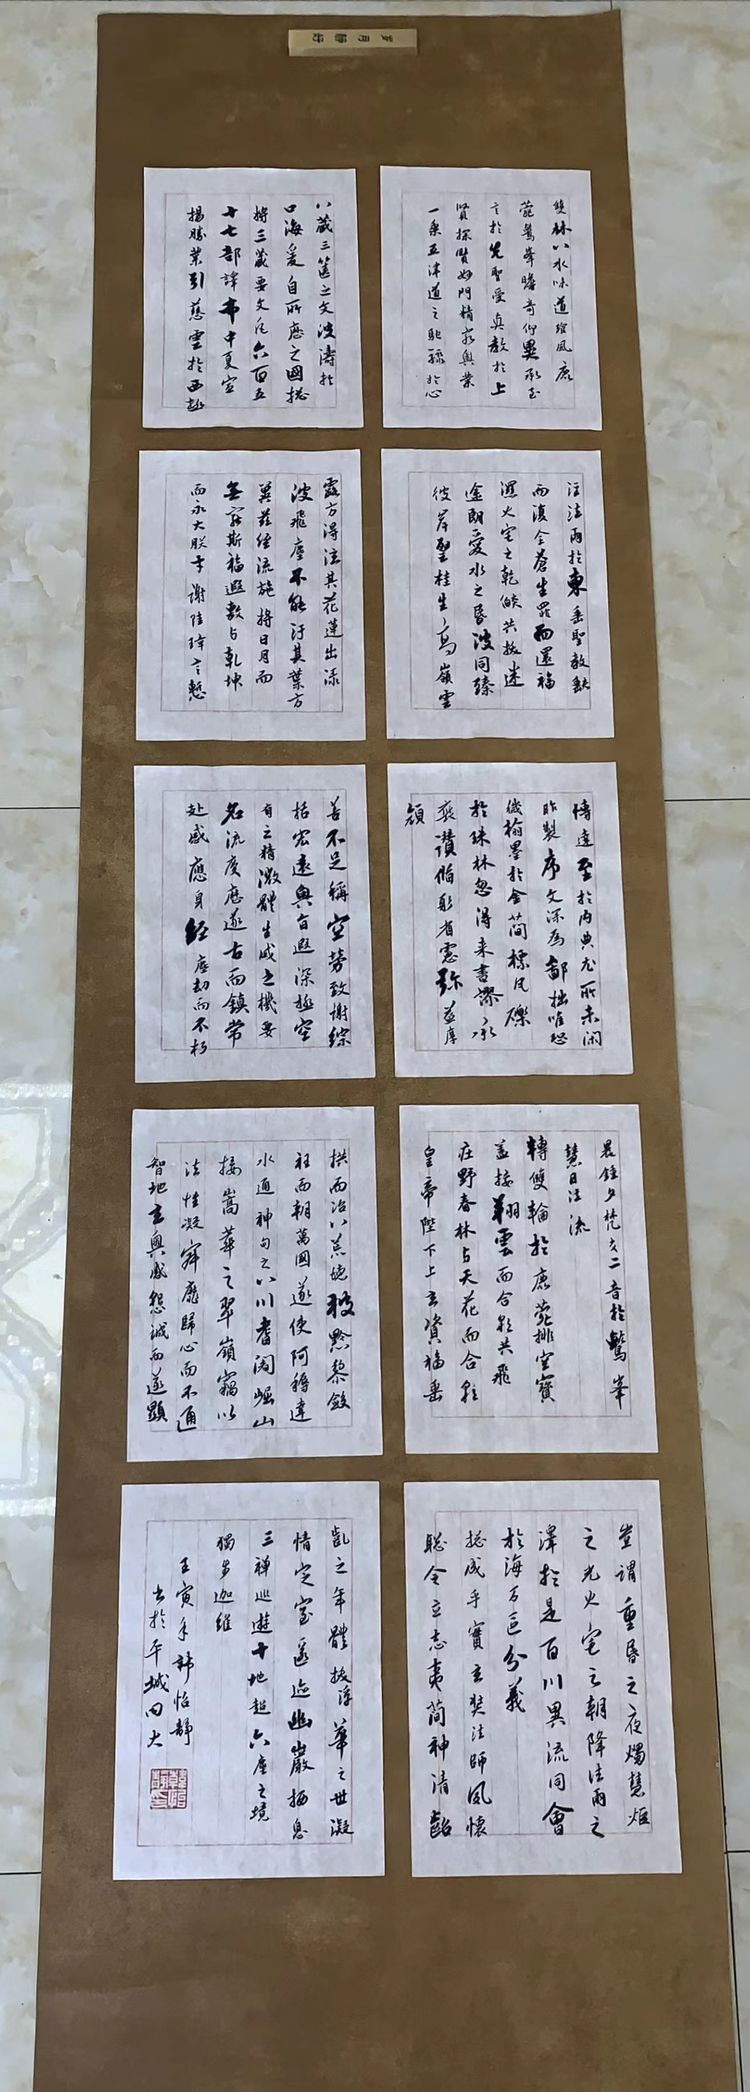 岁月静好
雙林八水味道飡風鹿
菀鷲峯瞻奇仰異承至
言於先聖受真教於上
賢探賾妙門精窮奧業
一乘五律道之馳驟於心
八藏三篋之文波濤於
口海爰自所歷之國揔
將三藏要文凡六百五
十七部譯布中夏宣
揚勝業引慈雲於西極
注法雨於東垂聖教缺
而復全蒼生罪而還福
濕火宅之乾燄共拔迷
途朗愛水之昏波同臻
彼岸聖桂生高嶺雲
露方得泫其花蓮出淥
波飛塵不能汙其葉方
冀茲經流施將日月而
無窮斯福遐敷与乾坤
而永大朕才謝珪璋言慙
博達至於內典尤所未閑
昨製序文深為鄙拙唯恐
穢翰墨於金簡標瓦礫
於珠林忽得来書謬承
褒讚脩躬省慮弥益厚
顔
善不足稱空勞致謝綜
括宏遠奧旨遐深極空
有之精微體生滅之機要
名流慶應遂古而鎮常
赴感應身經塵劫而不朽
晨鍾夕梵交二音於鷲峯
慧日法流
轉雙輪於鹿菀排空寶
蓋接翔雲而合彩共飛
莊野春林与天花而合彩
皇帝陛下上玄資福垂
拱而治八荒德被黔黎斂
衽而朝萬國遂使阿耨達
水通神甸之八川耆闍崛山
接嵩華之翠嶺竊以
法性凝寂靡歸心而不通
智地玄奧感懇誠而遂顯
豈謂重昏之夜燭慧炬
之光火宅之朝降法雨之
澤於是百川異流同會
於海万區分義
揔成乎實玄奘法師夙懷
聡令立志夷簡神清齠
齔之年體拔浮華之世凝
情定室匿迹幽巖栖息
三禅巡遊十地超六塵之境
獨步迦維
壬寅年韩怡靜
书於平城回大